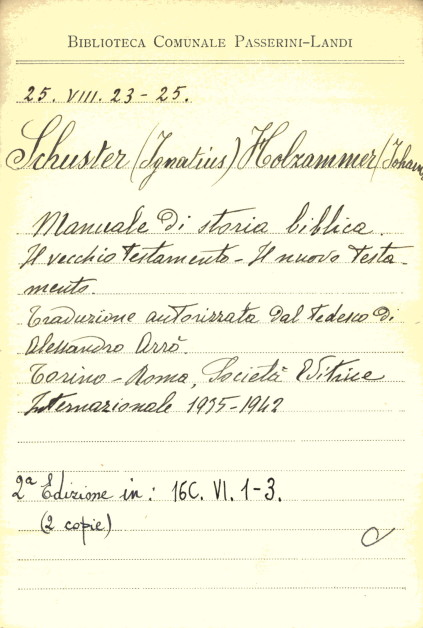 BIBLIOTECA COMUNALE PASSERINI-LANDI
25. VIII. 23-25.
Schuster (Ignatius) Holzammer (Johann
Manuale di storia biblica.
Il vecchio testamento - Il nuovo Testa-
mento.
Traduzione autorizzata dal tedesco di
Alessandro Arrò.
Torino-Roma, Società Editrice
Internazionale 1935-1942
2ª Edizione in: 16C. VI. 1-3.
(2 copie)